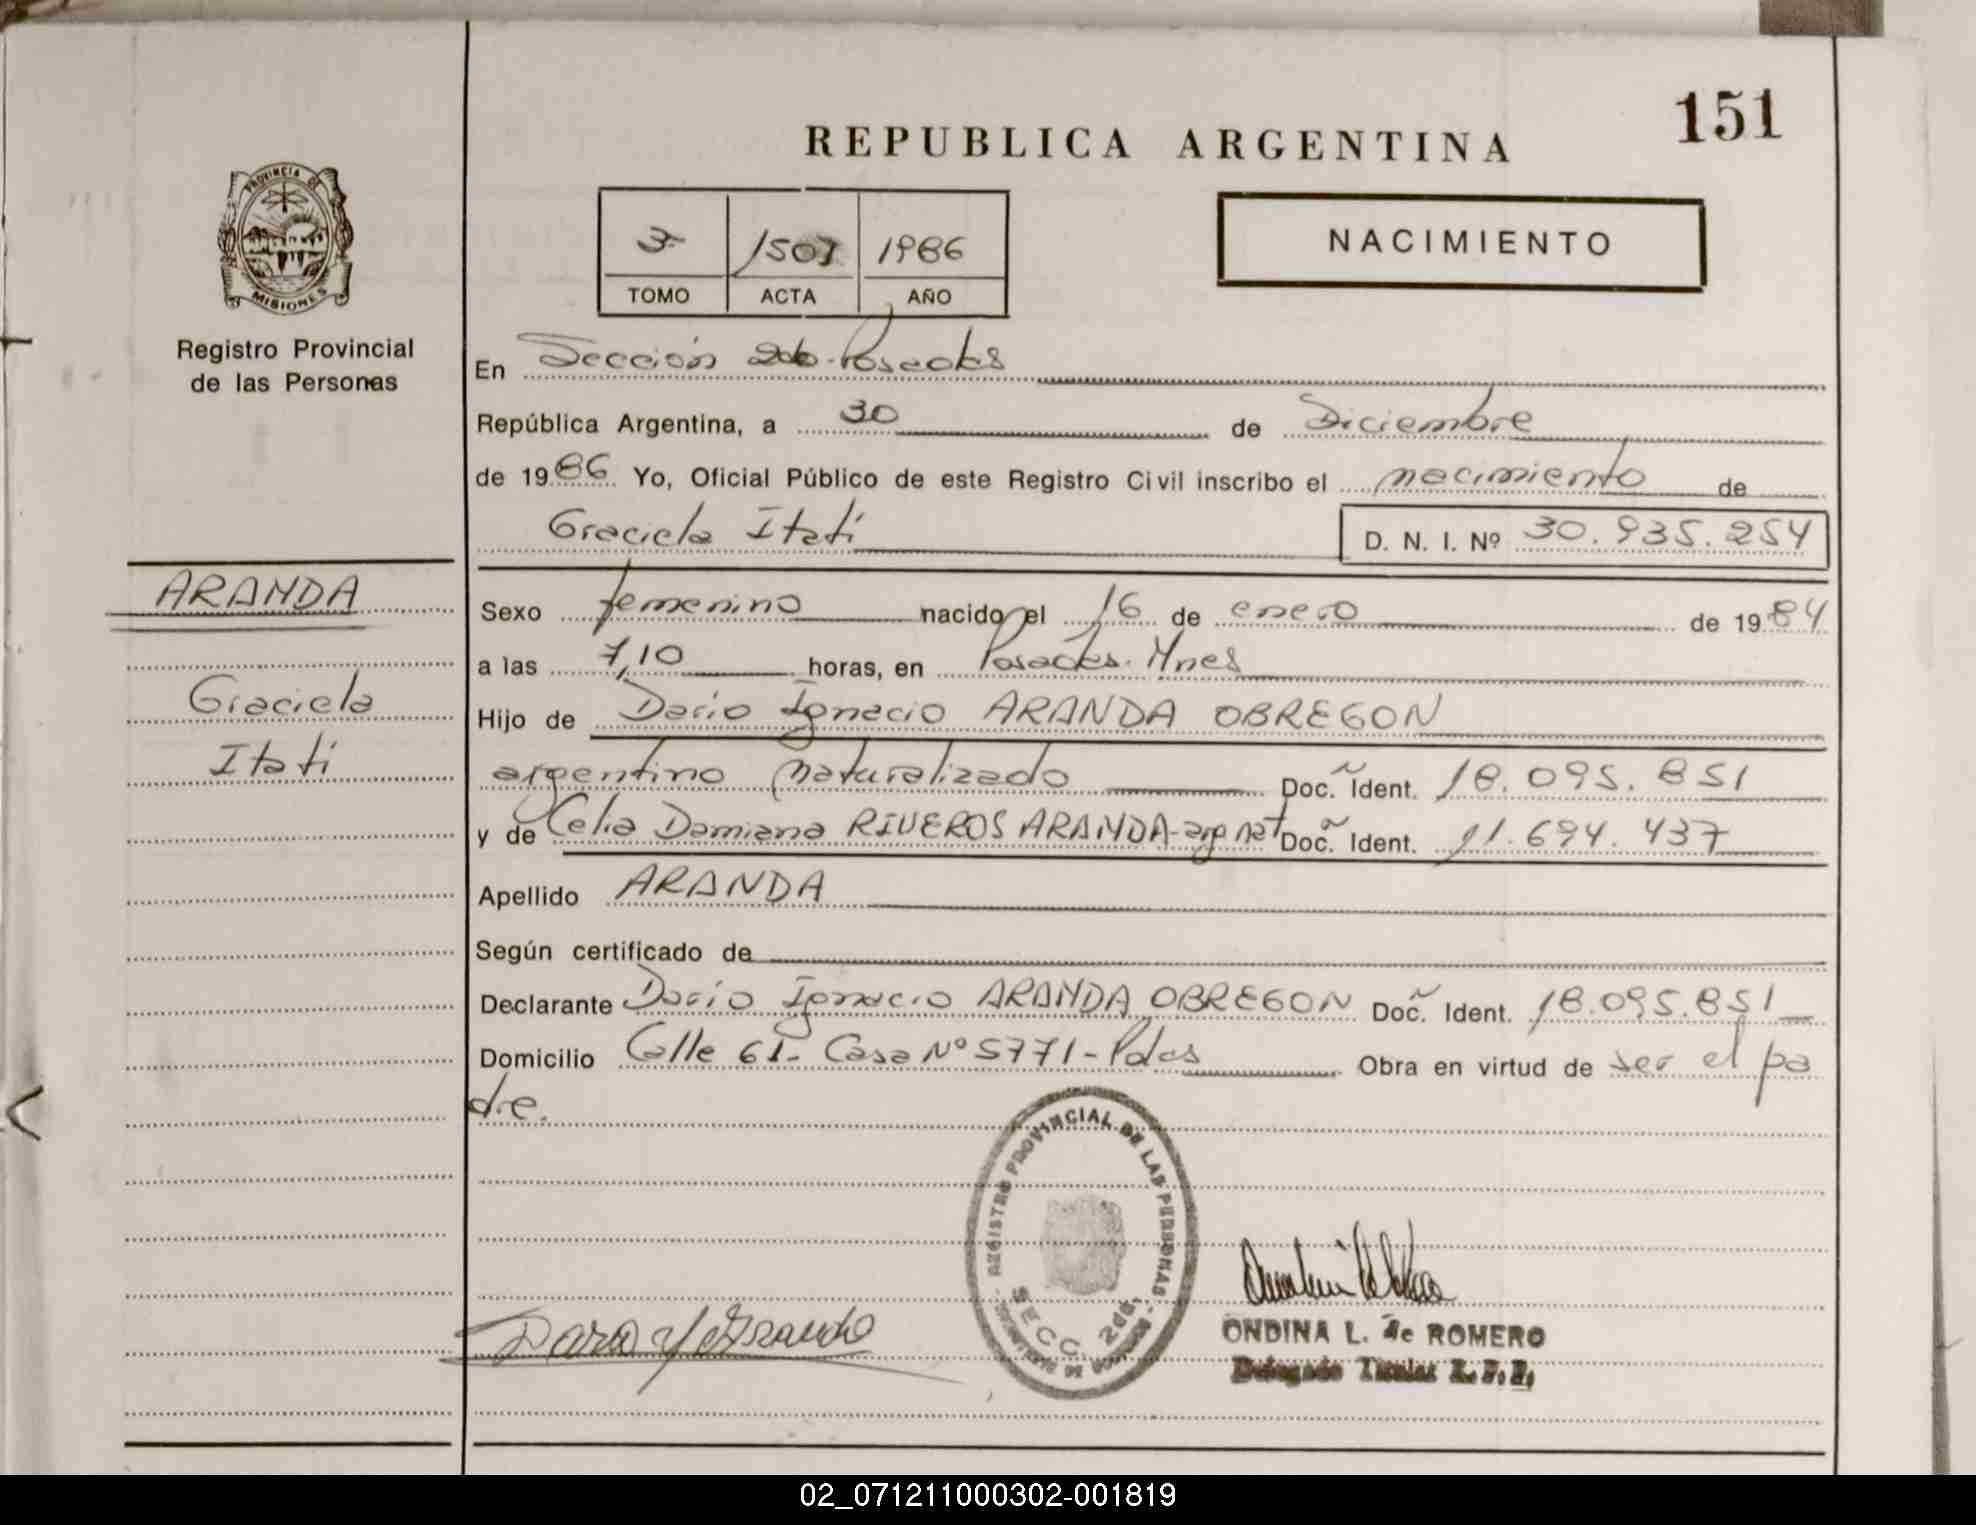 151
REPUBLICA ARGENTINA
PROVINCIA DE
MISIONES
Registro Provincial
de las Personas
3 1507 1986
TOMO ACTA AÑO
NACIMIENTO
En Sección 2da-Posadas
República Argentina, a 30 de Diciembre
de 1986 Yo, Oficial Público de este Registro Civil inscribo el nacimiento de
Graciela Itatí D. N. I. Nº 30.935.254
ARANDA
Graciela
Itatí
Sexo femenino nacido el 16 de enero de 1984
a las 7,10 horas, en Posadas. Mnes
Hijo de Dario Ignacio ARANDA OBREGON
argentino naturalizado Doc. Ident. 18.095.851
y de Celia Damiana RIVEROS ARANDA-arg nat Doc. Ident. 11.694.437
Apellido ARANDA
Según certificado de
Declarante Dario Ignacio ARANDA OBREGON Doc. Ident. 18.095.851
Domicilio Calle 61- Casa Nº 5771-Pdas Obra en virtud de ser el pa
dre.
REGISTRO PROVINCIAL DE LAS PERSONAS
SECC. 2da.
ONDINA L. de ROMERO
Delegado Titular R.P.P.
02_071211000302-001819